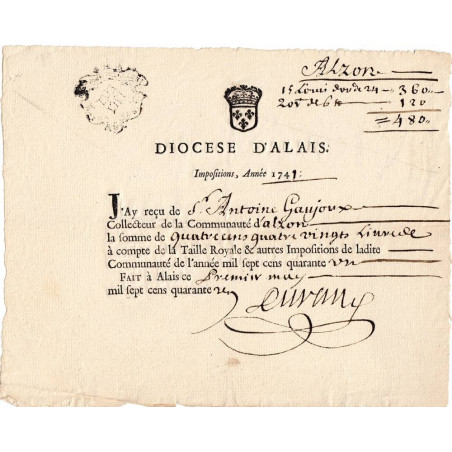 Alzon
15 Louis d'or de 24 - 360
20 s de 6 - 120
= 480
DIOCESE D'ALAIS.
Impositions, Année 1741.
J'Ay reçu de Sr. Antoine Gaujoux
Collecteur de la Communauté d'alzon
la somme de quatre cens quatre vingts Livres
à compte de la Taille Royale & autres Impositions de ladite
Communauté de l'année mil sept cens quarante un
FAIT à Alais ce Premier may
mil sept cens quarante